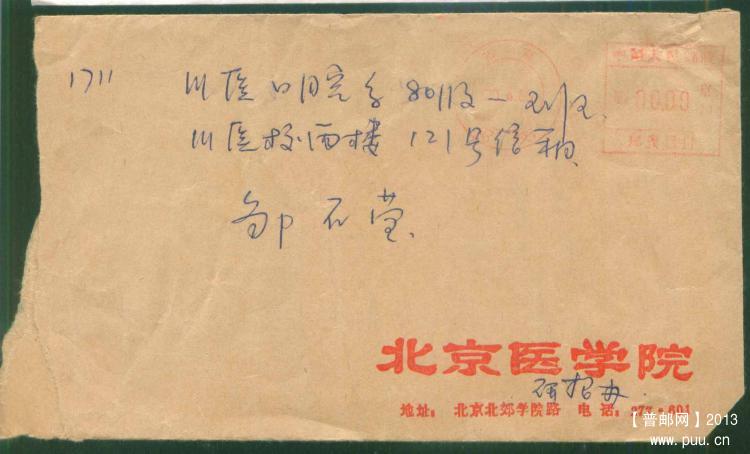 1711
川医口腔系80级一班
川医校西楼121号信箱
邹石莹
北京医学院
研招办
地址: 北京北郊学院路 电话:
【普邮网】2013
www.puu.cn